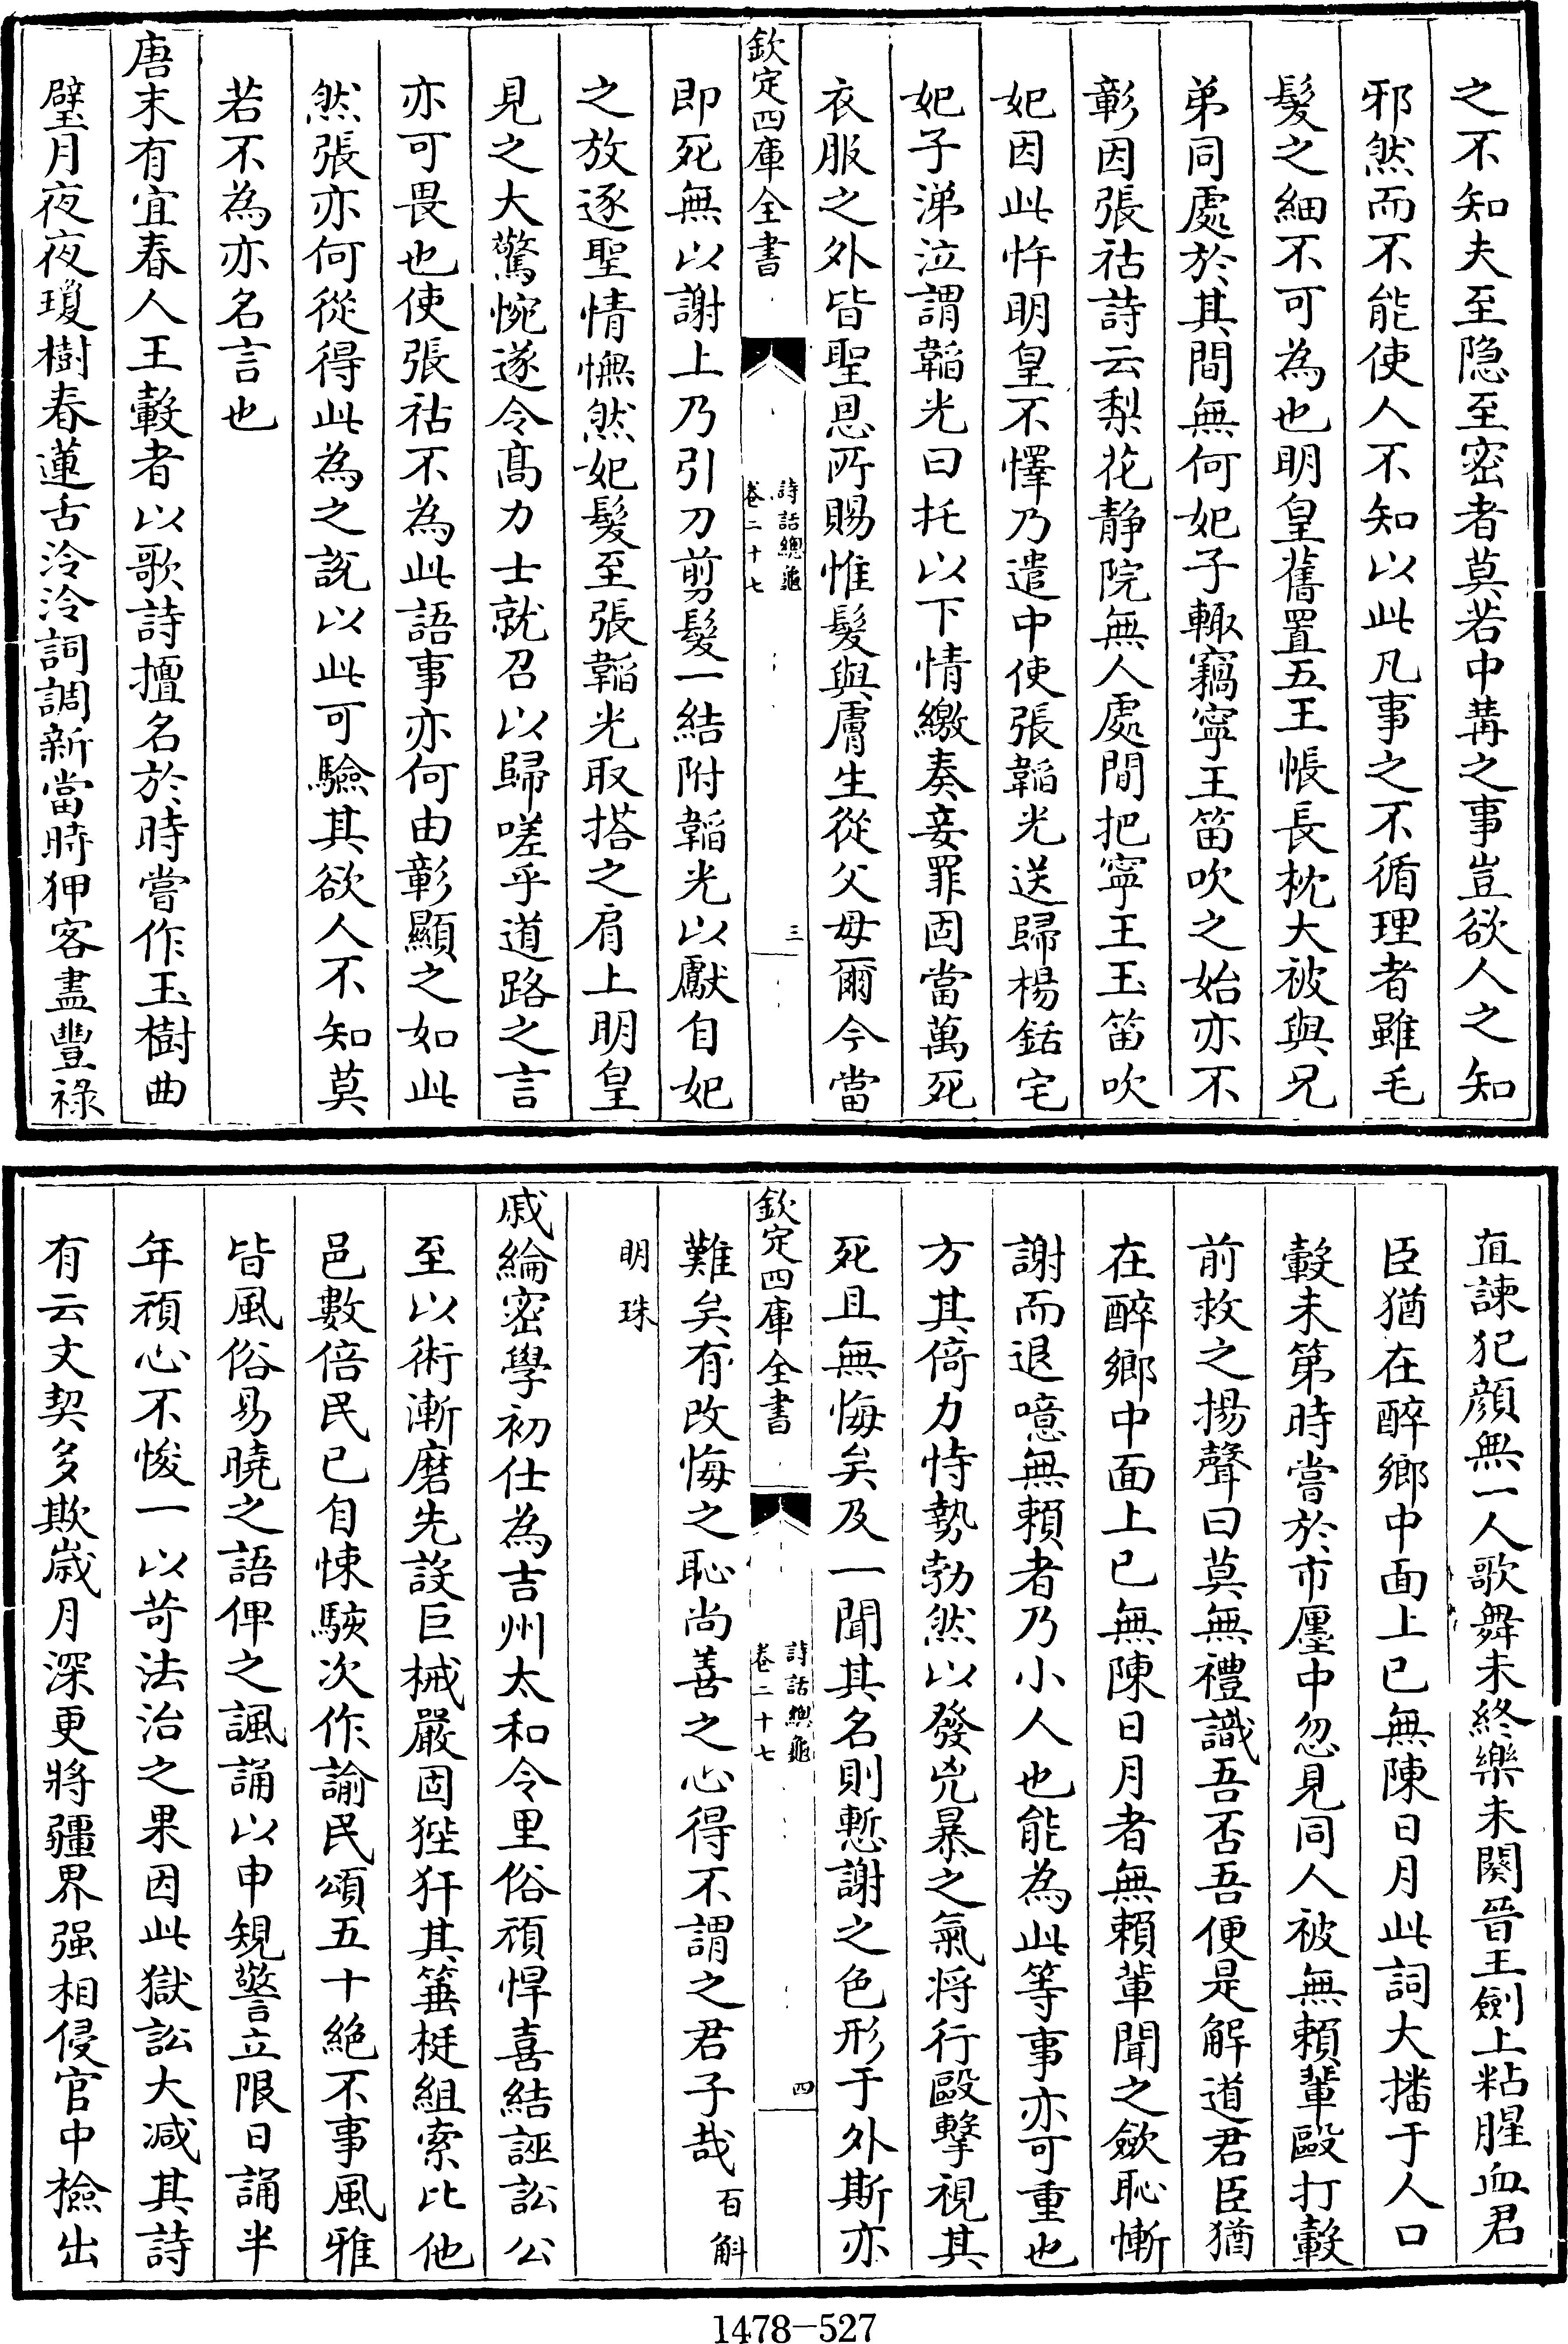 之不知夫至隐至密者莫若中冓之事豈欲人之知
邪然而不能使人不知以此凡事之不循理者雖毛
髮之細不可為也明皇舊置五王帳長枕大被與兄
弟同處於其間無何妃子輙竊寧王笛吹之始亦不
彰因張祜詩云梨花静院無人處間把寧王玉笛吹
妃因此忤明皇不懌乃遣中使張韜光送歸楊銛宅
妃子涕泣謂韜光曰托以下情繳奏妾罪固當萬死
衣服之外皆聖恩所賜惟髮與膚生從父母爾今當
欽定四庫全書
詩話總龜
卷二十七
三
即死無以謝上乃引刀剪髮一結附韜光以獻自妃
之放逐聖情憮然妃髮至張韜光取搭之肩上明皇
見之大驚惋遂令髙力士就召以歸嗟乎道路之言
亦可畏也使張祜不為此語事亦何由彰顯之如此
然張亦何從得此為之説以此可驗其欲人不知莫
若不為亦名言也
唐末有宜春人王轂者以歌詩擅名於時嘗作玉樹曲
璧月夜夜瓊樹春蓮舌泠泠詞調新當時狎客盡豐祿
直諫犯顔無一人歌舞未終樂未闋晉王劍上粘腥血君
臣猶在醉鄉中面上已無陳日月此詞大播于人口
轂未第時嘗於市廛中忽見同人被無賴輩毆打轂
前救之揚聲曰莫無禮識吾否吾便是解道君臣猶
在醉鄉中面上已無陳日月者無賴輩聞之歛恥慚
謝而退噫無賴者乃小人也能為此等事亦可重也
方其倚力恃勢勃然以發兇暴之氣将行毆擊視其
死且無悔矣及一聞其名則慙謝之色形于外斯亦
欽定四庫全書
詩話總龜
卷二十七
四
難矣有改悔之恥尚善之心得不謂之君子哉百斛
明珠
戚綸密學初仕為吉州太和令里俗頑悍喜結誣訟公
至以術漸磨先設巨械嚴固狴犴其箠梃組索比他
邑數倍民已自悚駭次作諭民頌五十絶不事風雅
皆風俗易曉之語俾之諷誦以申規警立限日誦半
年頑心不悛一以苛法治之果因此獄訟大减其詩
有云文契多欺嵗月深更將疆界强相侵官中檢出
1478—527